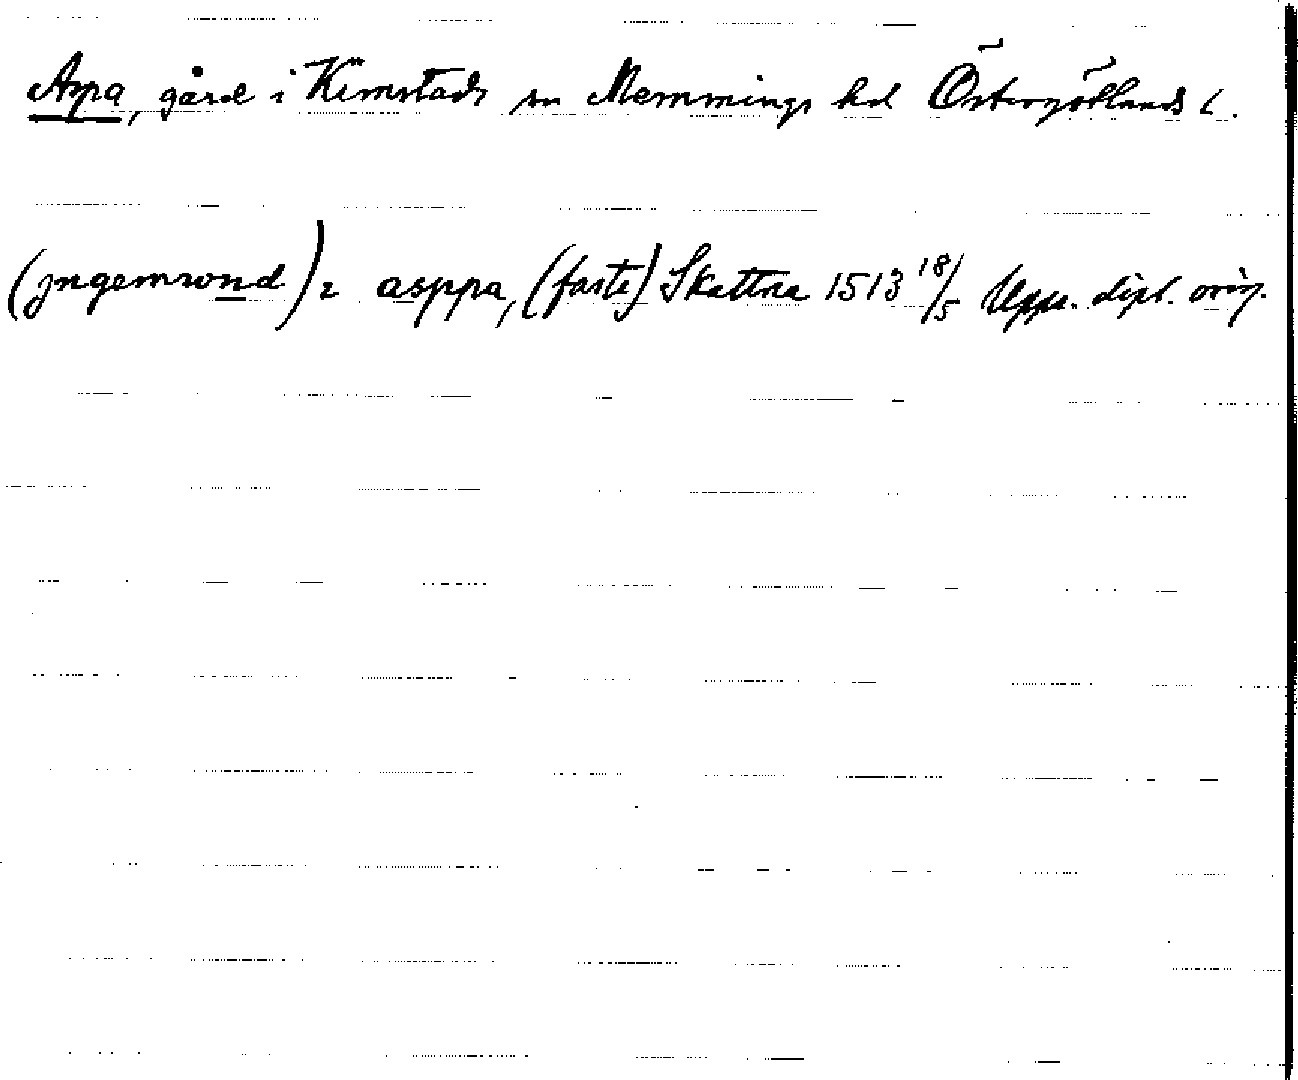 Aspa, gård i Kimstads sn Memmings hd Östergötlands l.
(jngemwnd) i asppa, (faste) Skattna 1513 18/5 Upps. dipl. orig.